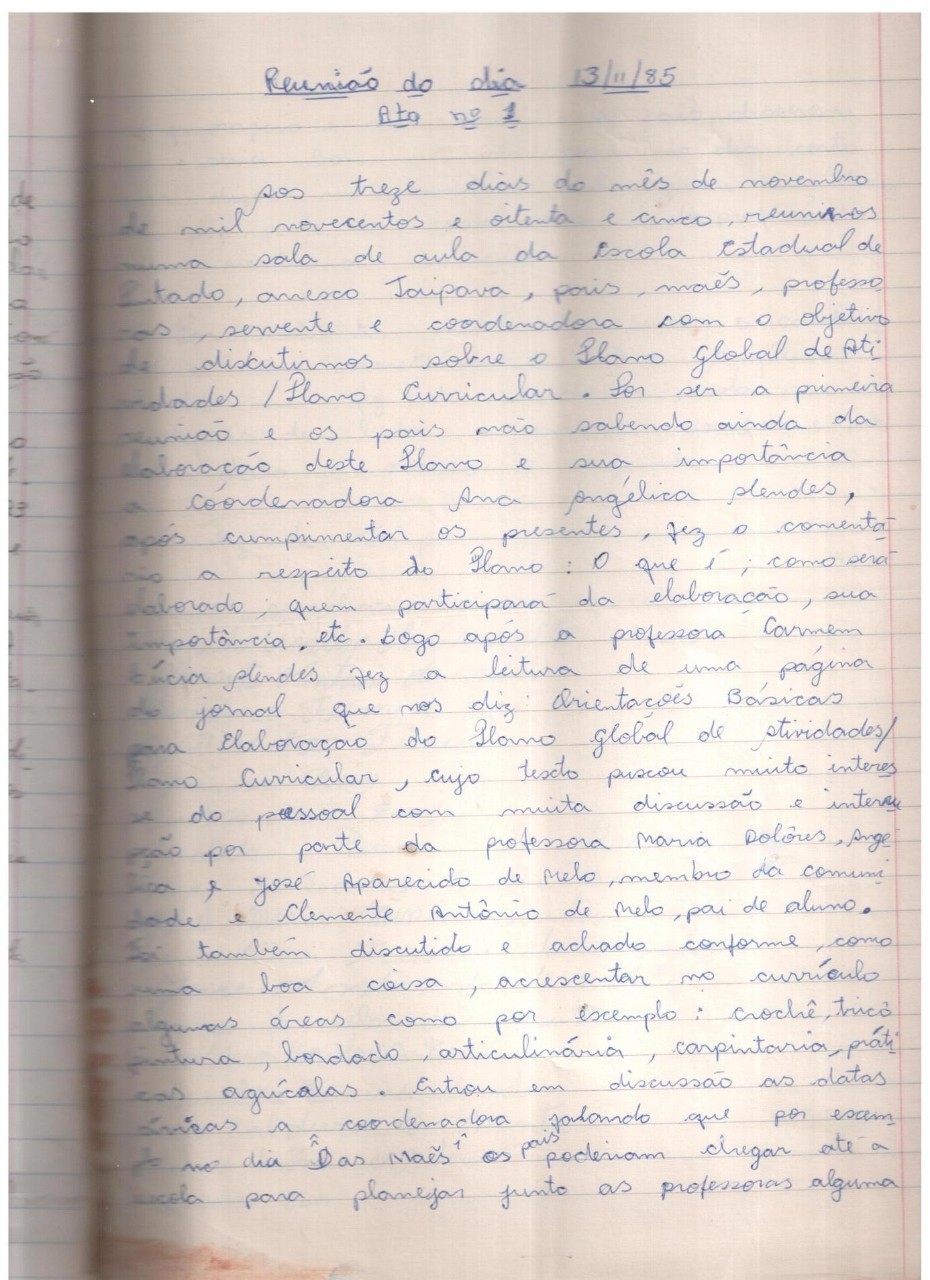 Reunião do dia 13/11/85
Ata nº 1
Aos treze dias do mês de novembro
de mil novecentos e oitenta e cinco, reunimos
numa sala de aula da Escola Estadual de
anesco Itaipava, pais, maẽs, professo
ras, servente e coordenadora com o objetivo
de discutirmos sobre o Plano Global de Ati
vidades / Plano Curricular. Por ser a primeira
reunião e os pais não sabendo ainda da
elaboração deste Plano e sua importância
a coordenadora Ana Angélica Mendes,
após cumprimentar os presentes, fez o comentá
rio a respeito do Plano: O que é; como será
elaborado; quem participará da elaboração, sua
importância, etc. Logo após a professora Carmem
Lúcia Mendes fez a leitura de uma página
do jornal que nos diz: Orientações Básicas
para Elaboração do Plano Global de Atividades/
Plano Curricular, cujo texto puxou muito interes
se do pessoal com muita discussão e interru
pção por parte da professora Maria Dolôres, Angé
lica e José Aparecido de Melo, membro da comuni
dade e Clemente Antônio de Melo, pai de aluno.
Foi também discutido e achado conforme, como
uma boa coisa, acrescentar no currículo
algumas áreas como por exemplo: crochê, tricô
pintura, bordado, articulinária, carpintaria, práti
cas agrícolas. Entrou em discussão as datas
cívicas a coordenadora falando que por exem
plo no dia "Das Maẽs" os pais poderiam chegar até a
escola para planejar junto as professoras alguma